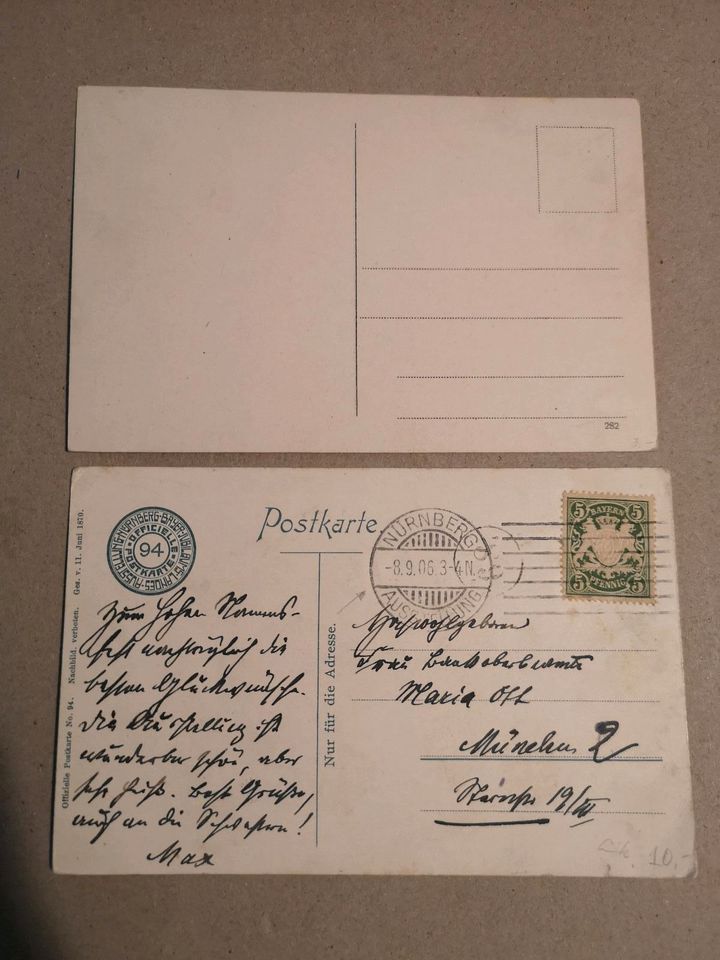 282
3.-
NÜRNBERG-BAYER.JUBILÄUMS-LANDES-AUSSTELLUNG
OFFICIELLE
94
POSTKARTE
Postkarte
NÜRNBERG
-8.9.06.3-4N.
AUSSTELLUNG
BAYERN
5 5
5 PFENNIG 5
Offizielle Postkarte No. 94. Nachbild. verboten. Ges. v. 11. Juni 1870.
Zum hohen Namens-
fest nachträglich die
besten Glückwünsche.
Die Ausstellung ist
wunderbar schön, aber
sehr heiß. Beste Grüße,
auch an die Schwestern!
Max
Nur für die Adresse.
Hochwohlgeboren
Frau
Maria Ott
München 2
19/III
10.-